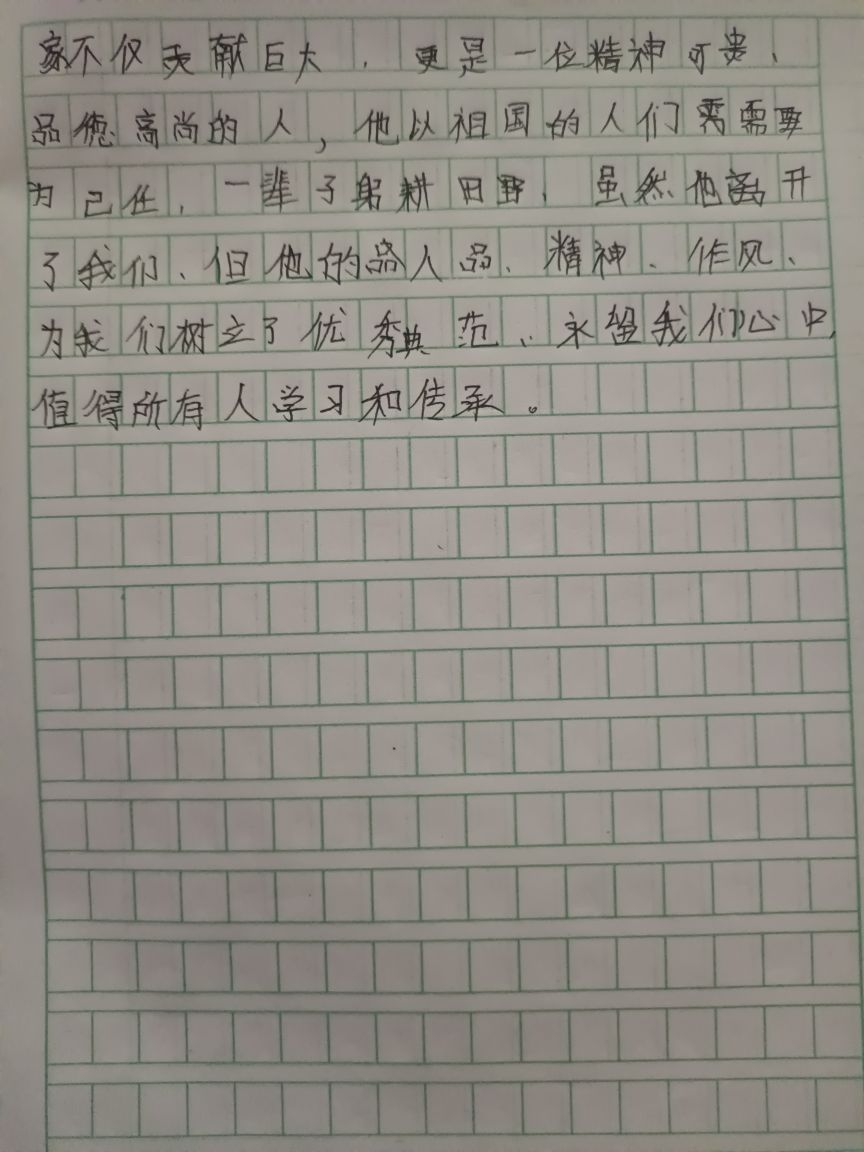 家不仅贡献巨大，更是一位精神可贵、
品德高尚的人，他以祖国的人们需需要
为己任，一辈子躬耕田野，虽然他离开
了我们、但他的品人品、精神、作风、
为我们树立了优秀典范，永留我们心中，
值得所有人学习和传承。